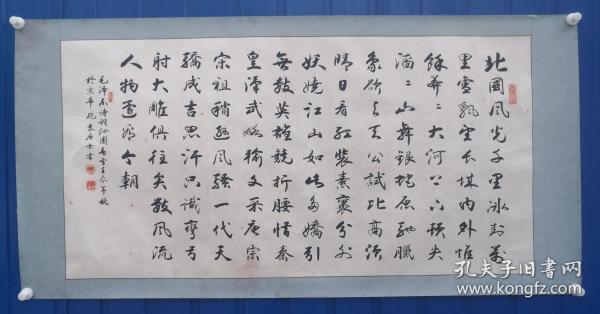 北國風光千里冰封萬
里雪飄望長城内外惟
餘莽〻大河上下頓失
滔〻山舞銀蛇原馳臘
象欲與天公試比高須
晴日看紅裝素裹分外
妖嬈江山如此多嬌引
無數英雄競折腰惜秦
皇漢武略輸文采唐宗
宋祖稍遜風騷一代天
驕成吉思汗只識彎弓
射大雕俱往矣數風流
人物還看今朝
毛澤東詩詞沁園春雪壬辰年秋
於京華硯居士書
孔夫子旧书网
www.kongfz.com